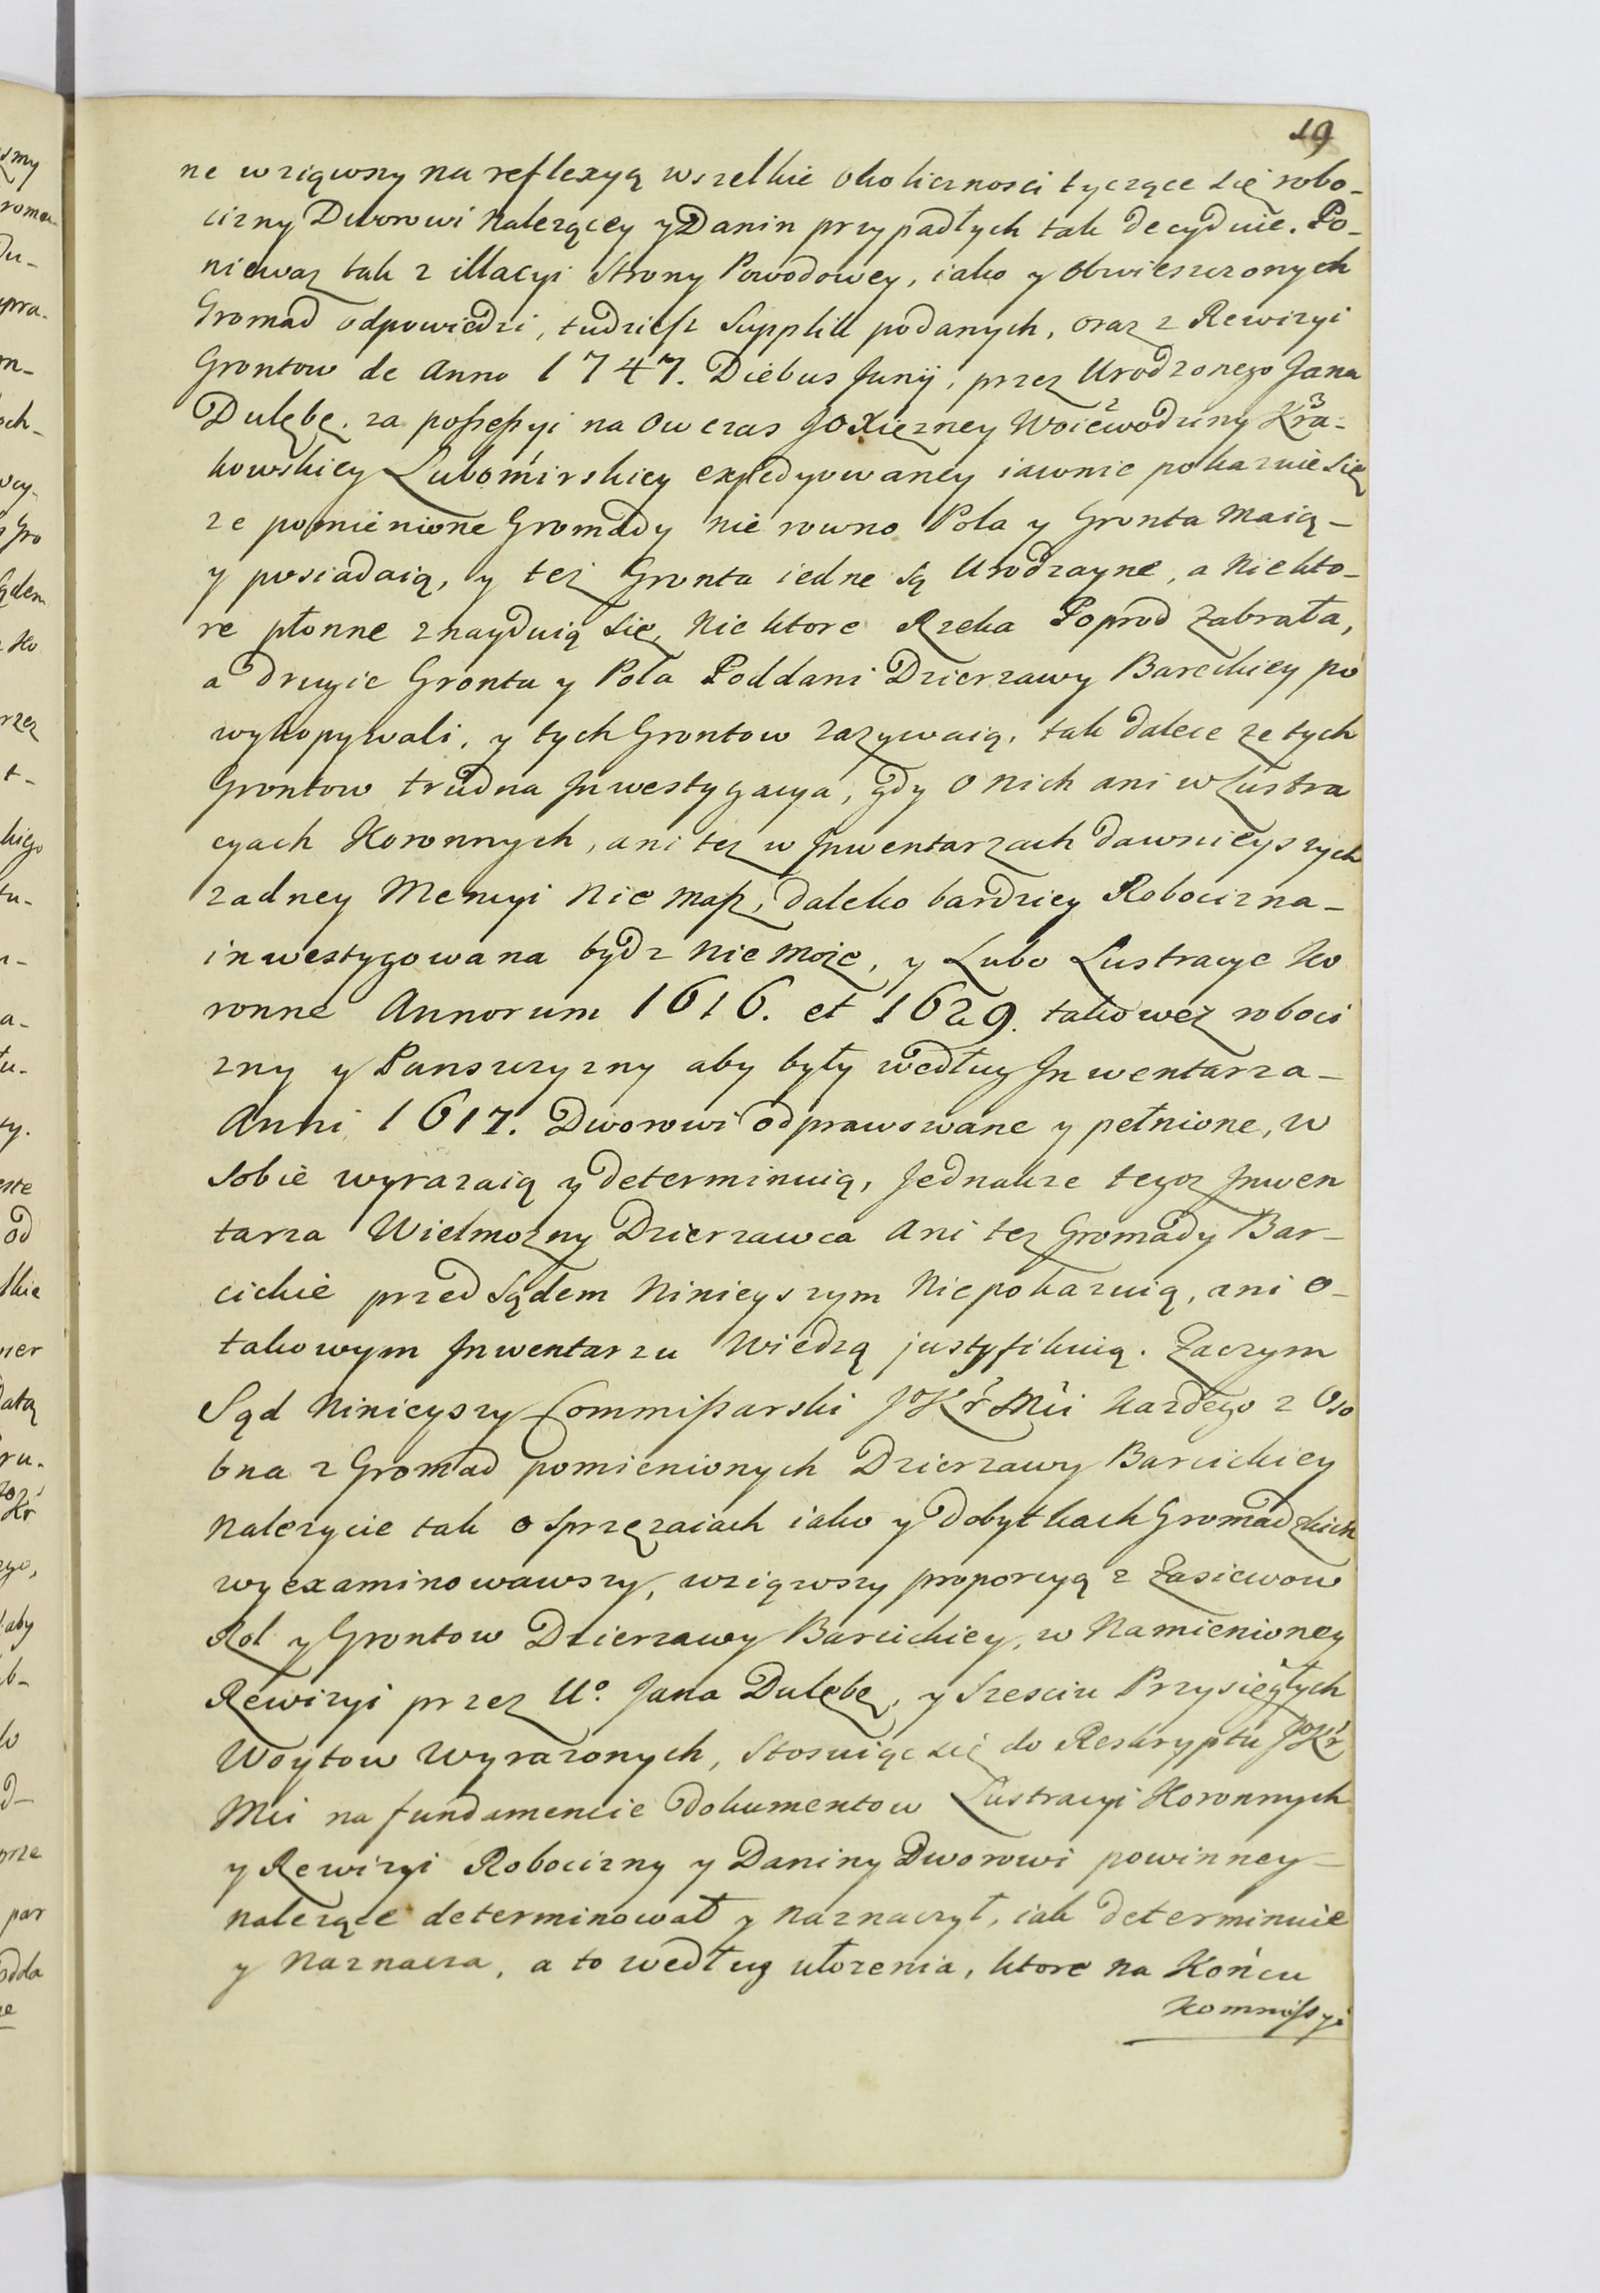 19
ne wziąwszy na reflexyą wszelkie okolicznosci tyczące się robo-
cizny Dworowi należącey y Danin przypadłych tak decyduie. Po-
niewaz tak z illacyi Strony Powodowey, iako y obwieszczonych
Gromad odpowiedzi, tudzieſz Supplik podanych, oraz z Rewizyi
Grontow de Anno 1747. Diebus Junij, przez Urodzonego Jana
Dulębę. za poſseſsyi na ow czas JO Xiężney Woiewodziny Kra-
kowskiey Lubomirskiey expedyowaney iawnie pokazuie się
ze pomienione Gromady nie rowno Pola y Gronta maią-
y posiadaią, y też Gronta iedne są Urodzayne, a niekto-
re płonne znayduią się, niektore Rzeka Poprod zabrała,
a drugie Gronta y Pola Poddani Dzierzawy Barcickiey po
wykopywali, y tych Grontow zazywaią, tak dalece ze tych
Grontow trudna Jnwestygacya, gdy o nich ani w Lustra
cyach Koronnych, ani tez w Jnwentarzach dawnieyszych
zadney Mencyi nie maſz, daleko bardziey Robocizna-
inwestygowana bydz nie może, y Lubo Lustracye Ko
ronne Annorum 1616. et 1629. takowez roboci
zny y Panszczyzny aby były według Jnwentarza-
Anni 1617. Dworowi odprawowane y pełnione, w
sobie wyrazaią y determinuią, Jednakze tegoz Jnwen
tarza Wielmozny Dzierzawca ani tez Gromady Bar-
cickie przed Sądem Ninieyszym nie pokazuią, ani o-
takowym Jnwentarzu Wiedzą justyfikuią. Zaczym
Sąd Ninieyszy Commiſsarski JoKr Mci kazdego z Oso
bna z Gromad pomienionych Dzierzawy Barcickiey
nalezycie tak o sprzęzaiach iako y dobytkach Gromadzkich
wyexaminowawszy, wziąwszy proporcyą z Zasiewow
Rol y Grontow Dzierzawy Barcickiey, w Namienioney
Rewizyi przez U° Jana Dulębę, y Szesciu Przysięgłych
Woytow wyrazonych, stosuiąc się do Reskryptu JoKr
Mci na fundamencie Dokumentow Lustracyi Koronnych
y Rewizyi Robocizny y Daniny Dworowi powinney-
nalezące determinował y naznaczył, iak determinuie
y Naznacza, a to według ułozenia, ktore na Końcu
Kommiſsyi